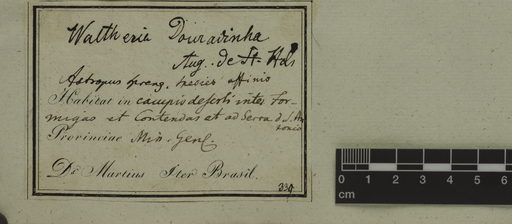 Waltheria Douradinha
Aug. de St. Hil.
Astropus spreng. species affinis
Habitat in campis deserti inter For-
migas et Contendas et ad Serra d. S. An
tonio
Provinciae Min. Gen.
Dr. Martius Iter Brasil.
334
0 1 2 3 4 5 6
cm